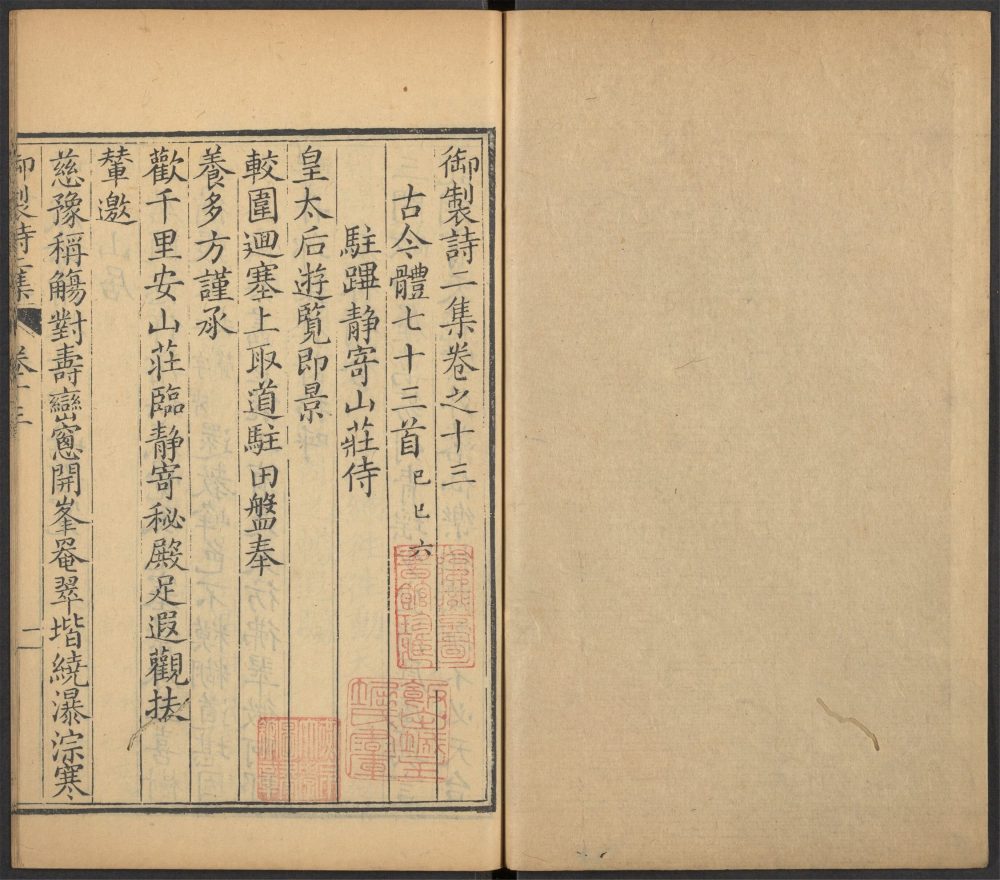 御製詩二集卷之十三
古今體七十三首 己巳六
駐蹕静寄山莊侍
皇太后遊覽即景
較圍迴塞上取道駐田盤奉
養多方謹承
歡千里安山莊臨静寄秘殿足遐觀扶
輦邀
慈豫稱觴對壽巒窻開峯罨翠堦繞瀑淙寒
御製詩二集 卷十三 一